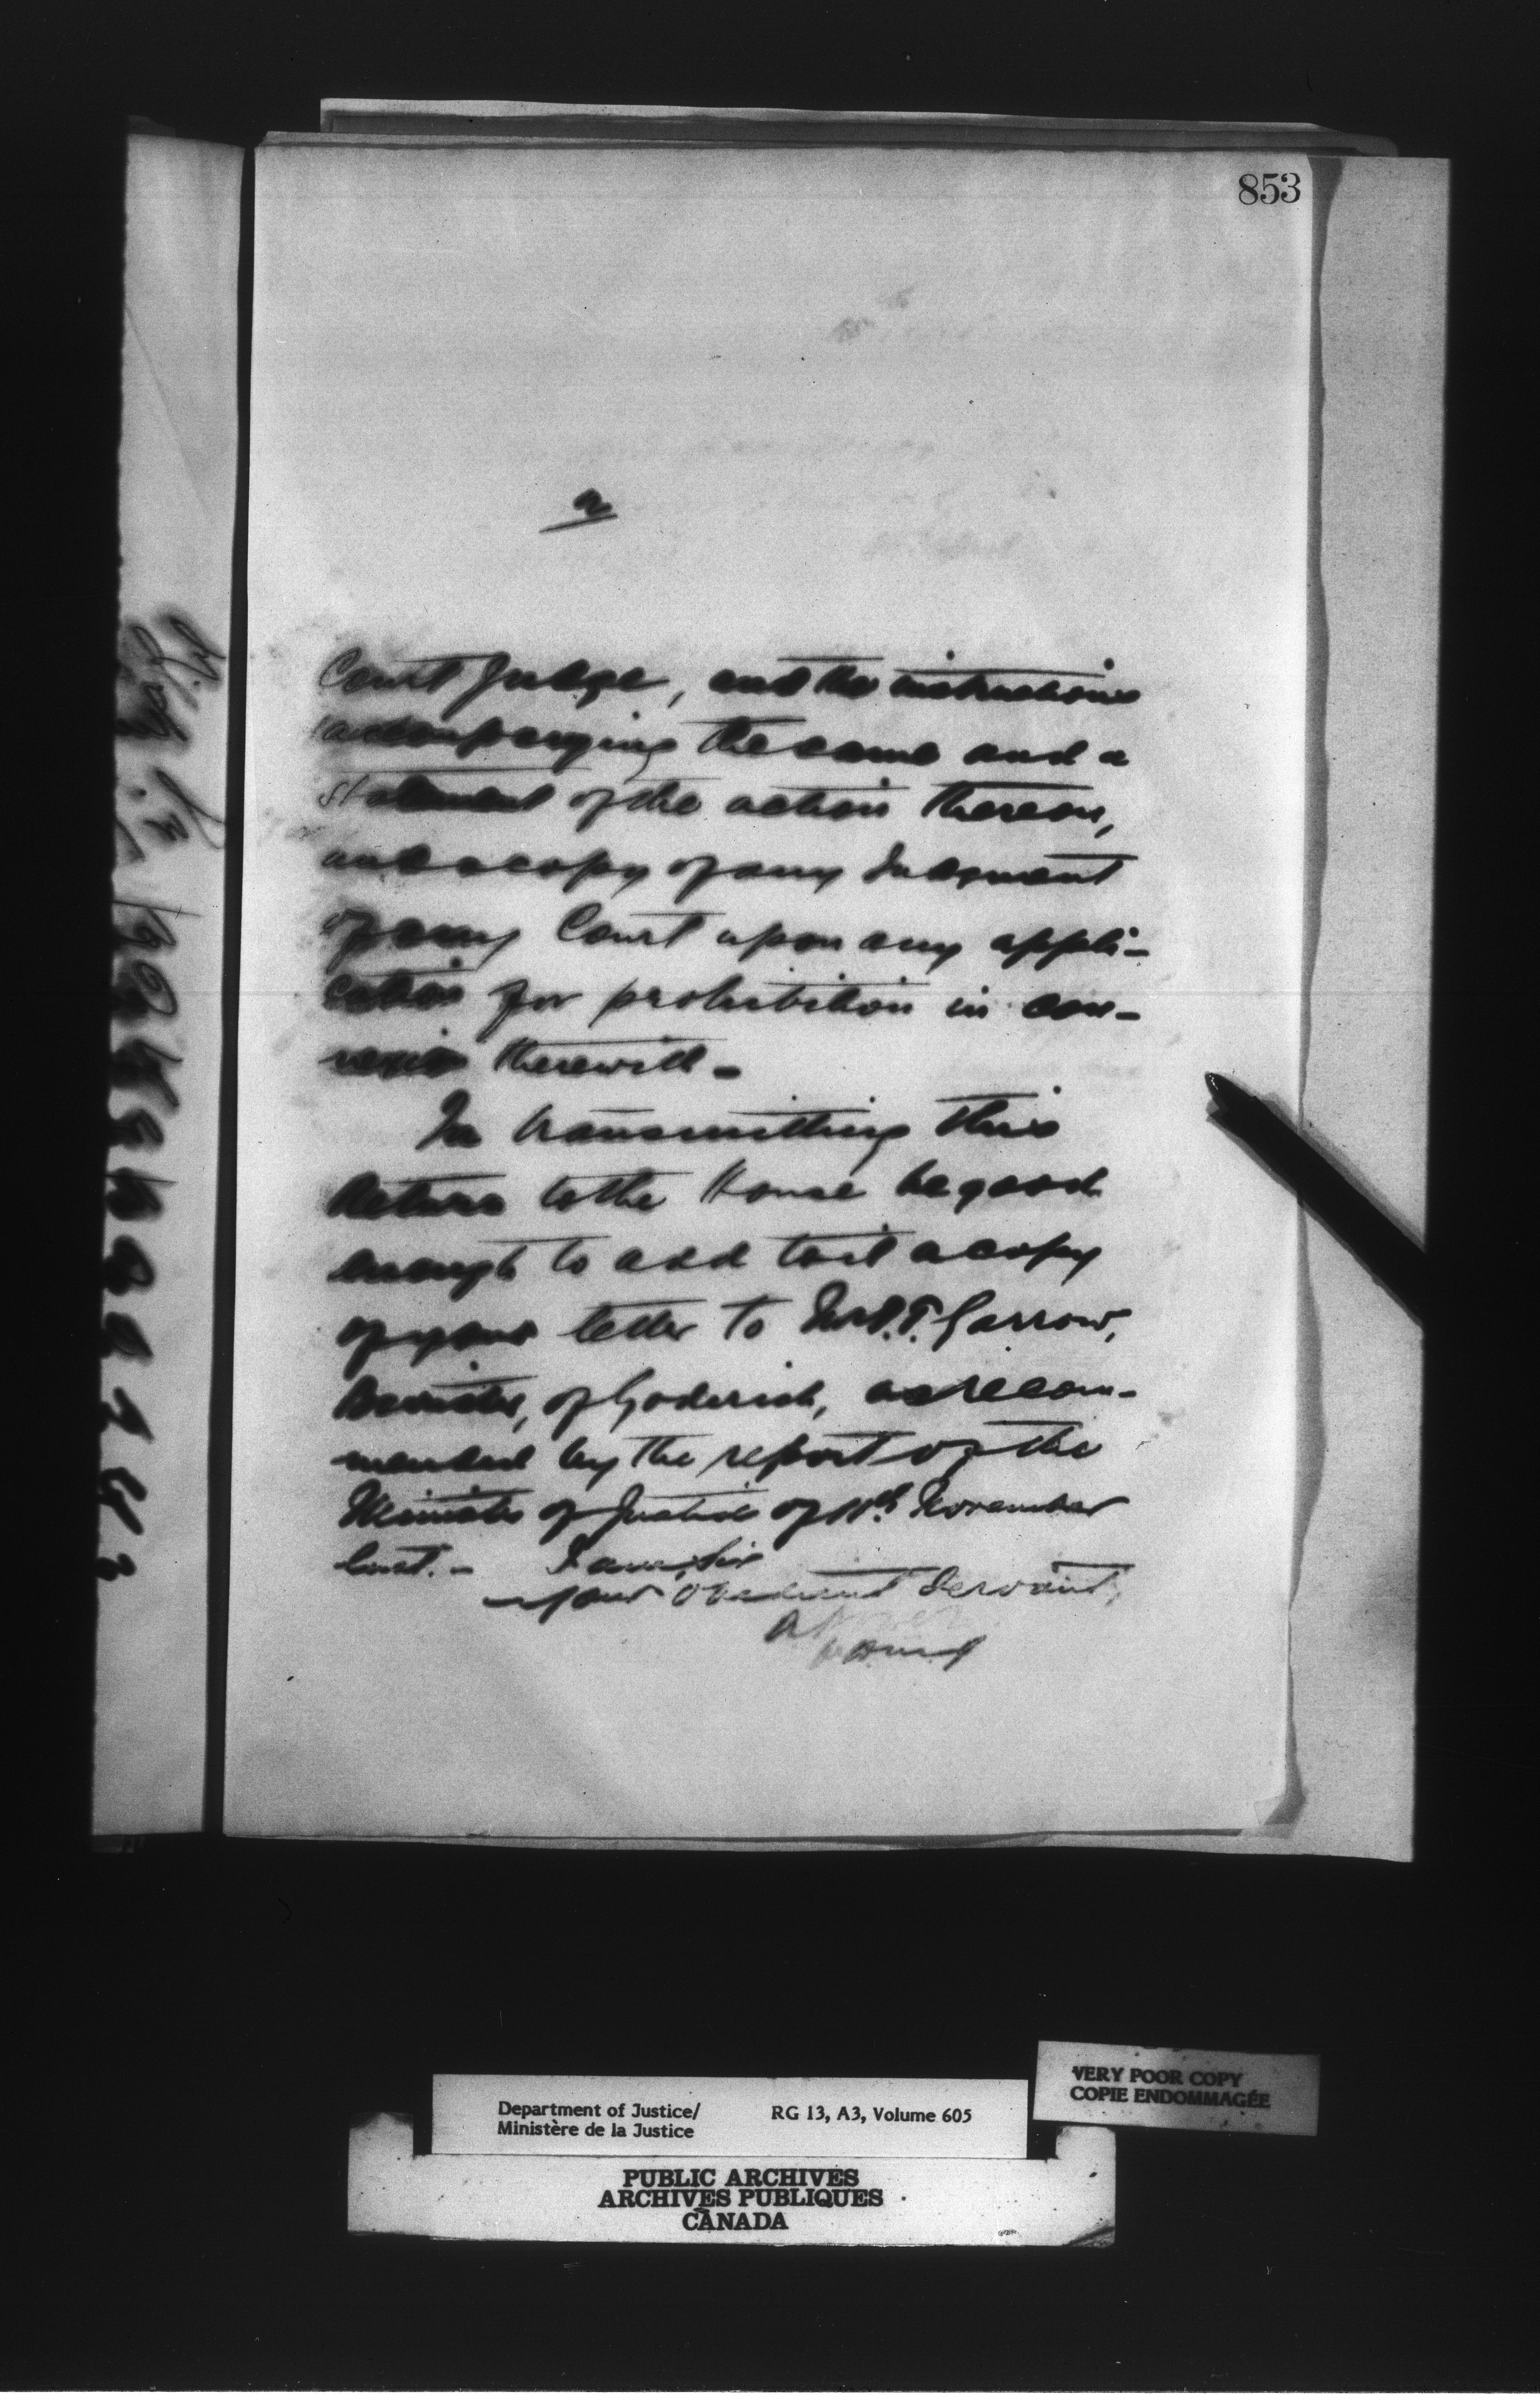 853
2
Court Judge, and the instructions
accompanying the same and a
statement of the action thereon,
and a copy of any Judgment
of any Court upon any appli-
cation for prohibition in con-
nexion therewith -
In transmitting this
Return to the House be good
enough to add to it a copy
of your letter to Mr. J.T. Garrow,
Barrister, of Goderich, as recom-
mended by the report of the
Minister of Justice of 11th November
last. - I am, Sir
your obedient Servant,
VERY POOR COPY
COPIE ENDOMMAGÉE
Department of Justice/ RG 13, A3, Volume 605
Ministère de la Justice
PUBLIC ARCHIVES
ARCHIVES PUBLIQUES
CANADA